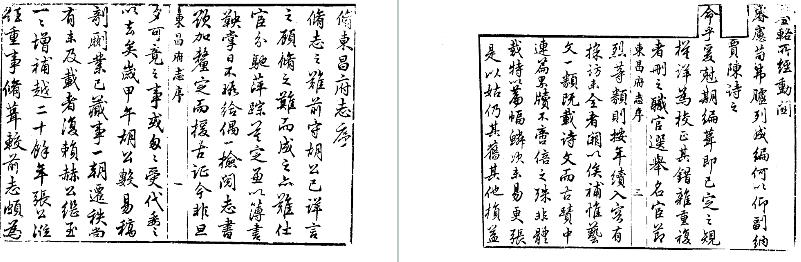 脩東昌府志序
脩志之難前守胡公已詳言
之顧脩之難而成之亦難仕
官分馳萍踪莫定亟以簿書
鞅掌日不暇給偶一檢閱志書
欲加釐定而援古证今非旦
東昌府志序 一
夕可竟之事或匆匆受代委之
以去矣歲甲午胡公數易稿
剞劂業已蕆事一朝遷秩尚
有未及載者復賴赫公繼至
一一增補越二十餘年張公涖
任重事脩葺較前志頗為
輅所經動關
睿慮苟弗臚列成編何以仰副納
賈陳詩之
命乎爰尅期編葺即已定之規
模詳為校正其錯雜重複
者刪之職官選舉名宦節
東昌府志序 三
烈等類則按年續入容有
採訪未全者闕以俟補惟藝
文一類既載詩文而古蹟中
連篇累牘不啻倍之殊非體
裁特以篇幅鱗次未易更張
是以姑仍其舊其他損益